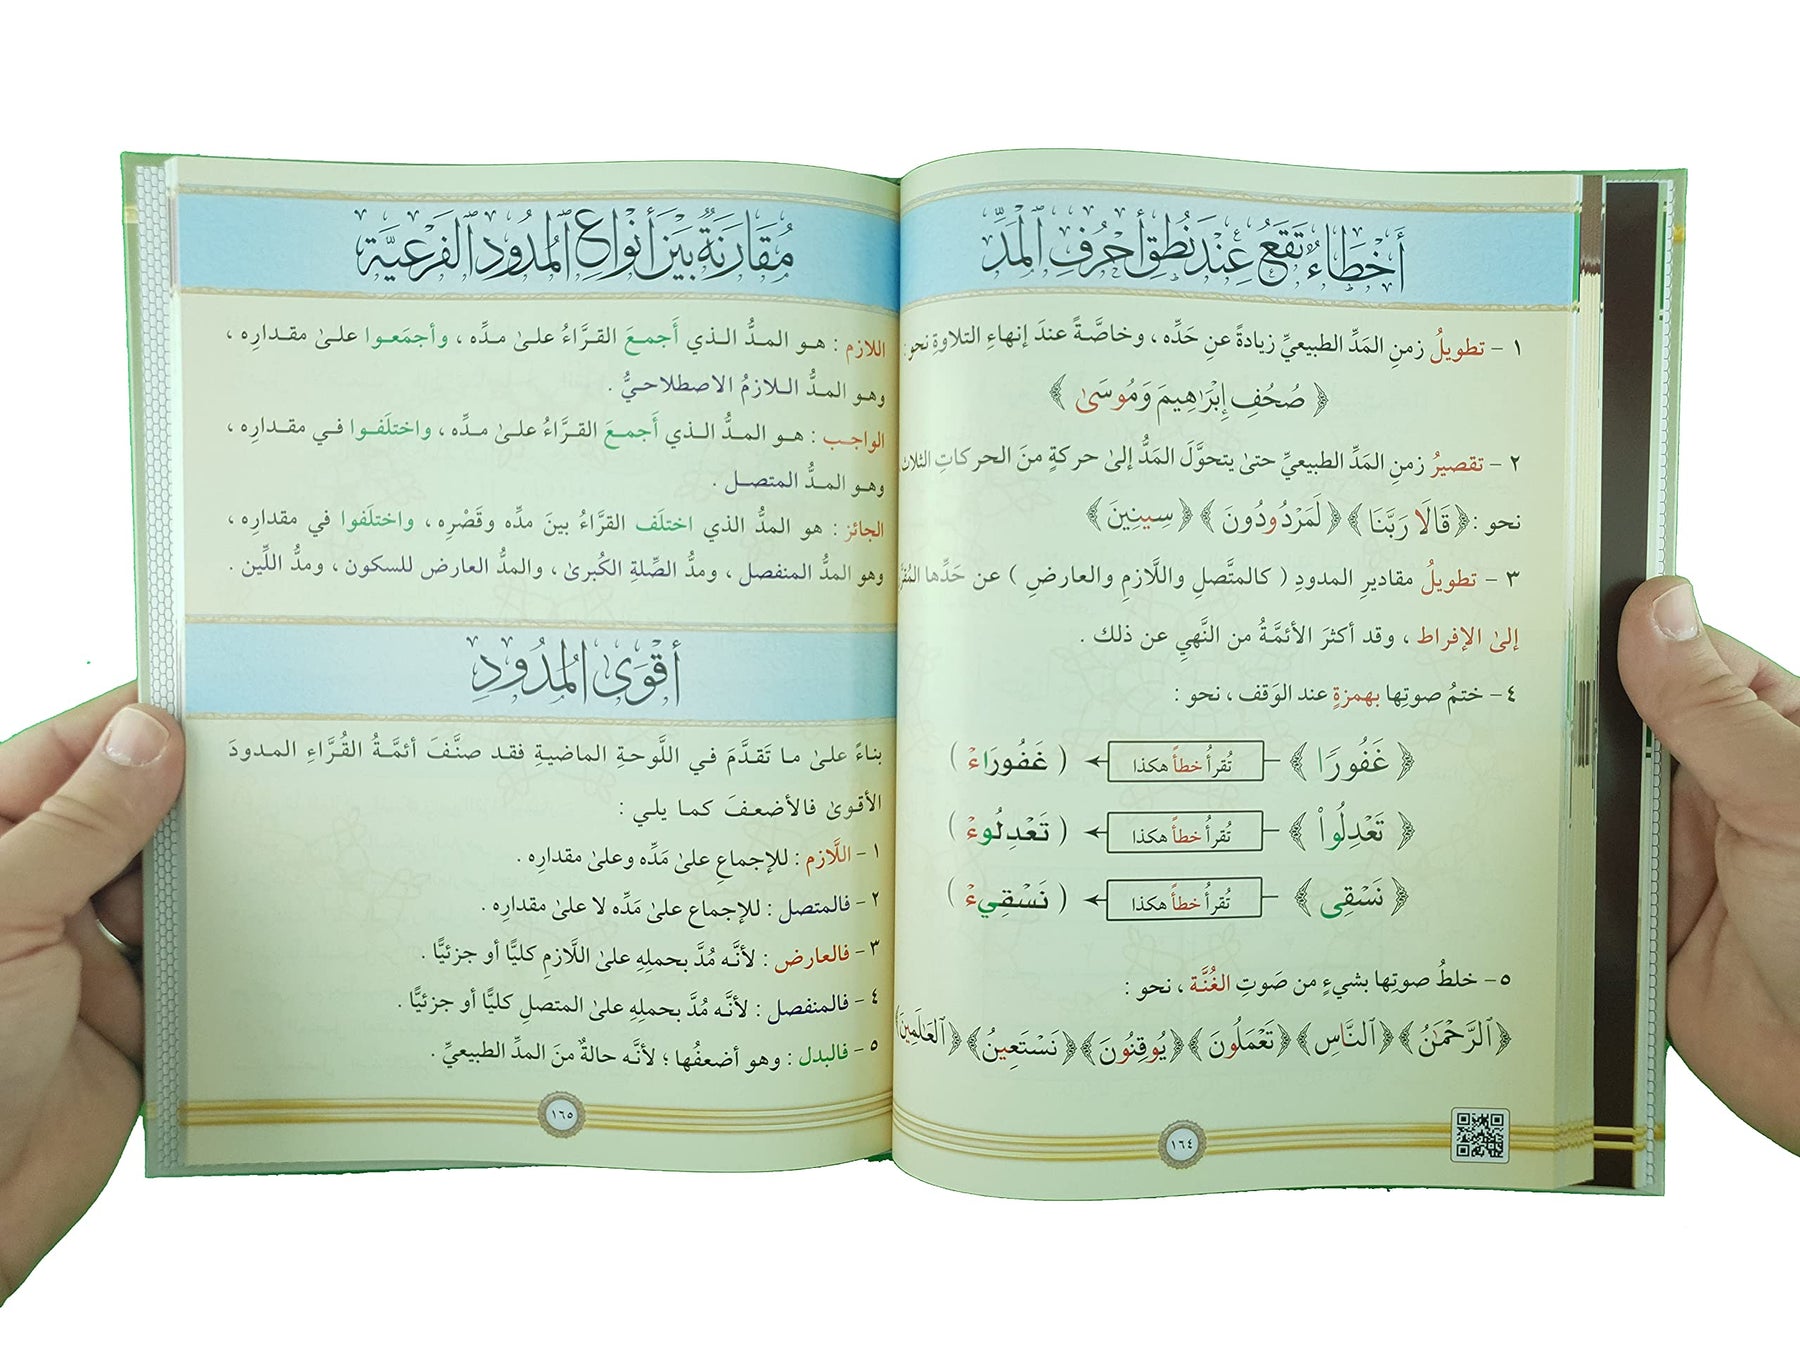 أَخْطَاءٌ تَقَعُ عِنْدَ نُطْقِ أَحْرُفِ ٱلْمَدِّ
١ - تطويلُ زمنِ المَدِّ الطبيعيِّ زيادةً عنِ حَدِّه ، وخاصَّةً عندَ إنهاءِ التلاوةِ نحو :
﴿ صُحُفِ إِبْرَٰهِيمَ وَمُوسَىٰ ﴾
٢ - تقصيرُ زمنِ المَدِّ الطبيعيِّ حتىٰ يتحوَّلَ المَدُّ إلىٰ حركةٍ منَ الحركاتِ الثلاث
نحو : ﴿ قَالَا رَبَّنَا ﴾ ﴿ لَمَرْدُودُونَ ﴾ ﴿ سِينِينَ ﴾
٣ - تطويلُ مقاديرِ المدودِ ( كالمتَّصلِ واللَّازمِ والعارضِ ) عن حَدِّها
إلىٰ الإفراط ، وقد أكثرَ الأئمَّةُ من النَّهيِ عن ذلك .
٤ - ختمُ صوتِها بهمزةٍ عند الوَقف ، نحو :
﴿ غَفُورًا ﴾ تُقرأُ خطأً هكذا ( غَفُورَاءْ )
﴿ تَعْدِلُواْ ﴾ تُقرأُ خطأً هكذا ( تَعْدِلُوءْ )
﴿ نَسْقِى ﴾ تُقرأُ خطأً هكذا ( نَسْقِيءْ )
٥ - خلطُ صوتِها بشيءٍ من صَوتِ الغُنَّة ، نحو :
﴿ ٱلرَّحْمَٰنُ ﴾ ﴿ ٱلنَّاسِ ﴾ ﴿ تَعْمَلُونَ ﴾ ﴿ يُوقِنُونَ ﴾ ﴿ نَسْتَعِينُ ﴾ ﴿ ٱلْعَالَمِينَ ﴾
١٦٤
مُقَارَنَةٌ بَيْنَ أَنْوَاعِ ٱلْمُدُودِ ٱلْفَرْعِيَّةِ
اللازم : هـو المـدُّ الـذي أَجمعَ القرَّاءُ علىٰ مدِّه ، وأجمَعـوا علىٰ مقـدارِه ،
وهـو المـدُّ الـلازمُ الاصطلاحـيُّ .
الواجـب : هـو المـدُّ الـذي أَجمـعَ القـرَّاءُ علـىٰ مـدِّه ، واختلَفـوا فـي مقـدارِه ،
وهـو المـدُّ المتصـل .
الجائز : هو المدُّ الذي اختلَف القرَّاءُ بينَ مدِّه وقَصْرِه ، واختلَفوا في مقدارِه ،
وهو المدُّ المنفصل ، ومدُّ الصِّلةِ الكُبرىٰ ، والمدُّ العارض للسكون ، ومدُّ اللِّين .
أَقْوَى ٱلْمُدُودِ
بناءً علىٰ ما تَقدَّمَ في اللَّوحةِ الماضيةِ فقد صنَّفَ أئمَّةُ القُرَّاءِ المـدودَ
الأقـوىٰ فالأضعـفَ كمـا يلـي :
١ - اللَّازم : للإجماعِ علىٰ مَدِّه وعلىٰ مقدارِه .
٢ - فالمتصل : للإجماعِ علىٰ مَدِّه لا علىٰ مقدارِه .
٣ - فالعارض : لأنَّـه مُدَّ بحملِهِ علىٰ اللَّازمِ كليًّا أو جزئيًّا .
٤ - فالمنفصل : لأنَّـه مُدَّ بحملِهِ على المتصلِ كليًّا أو جزئيًّا .
٥ - فالبدل : وهو أضعفُها ؛ لأنَّـه حالةٌ منَ المدِّ الطبيعيِّ .
١٦٥